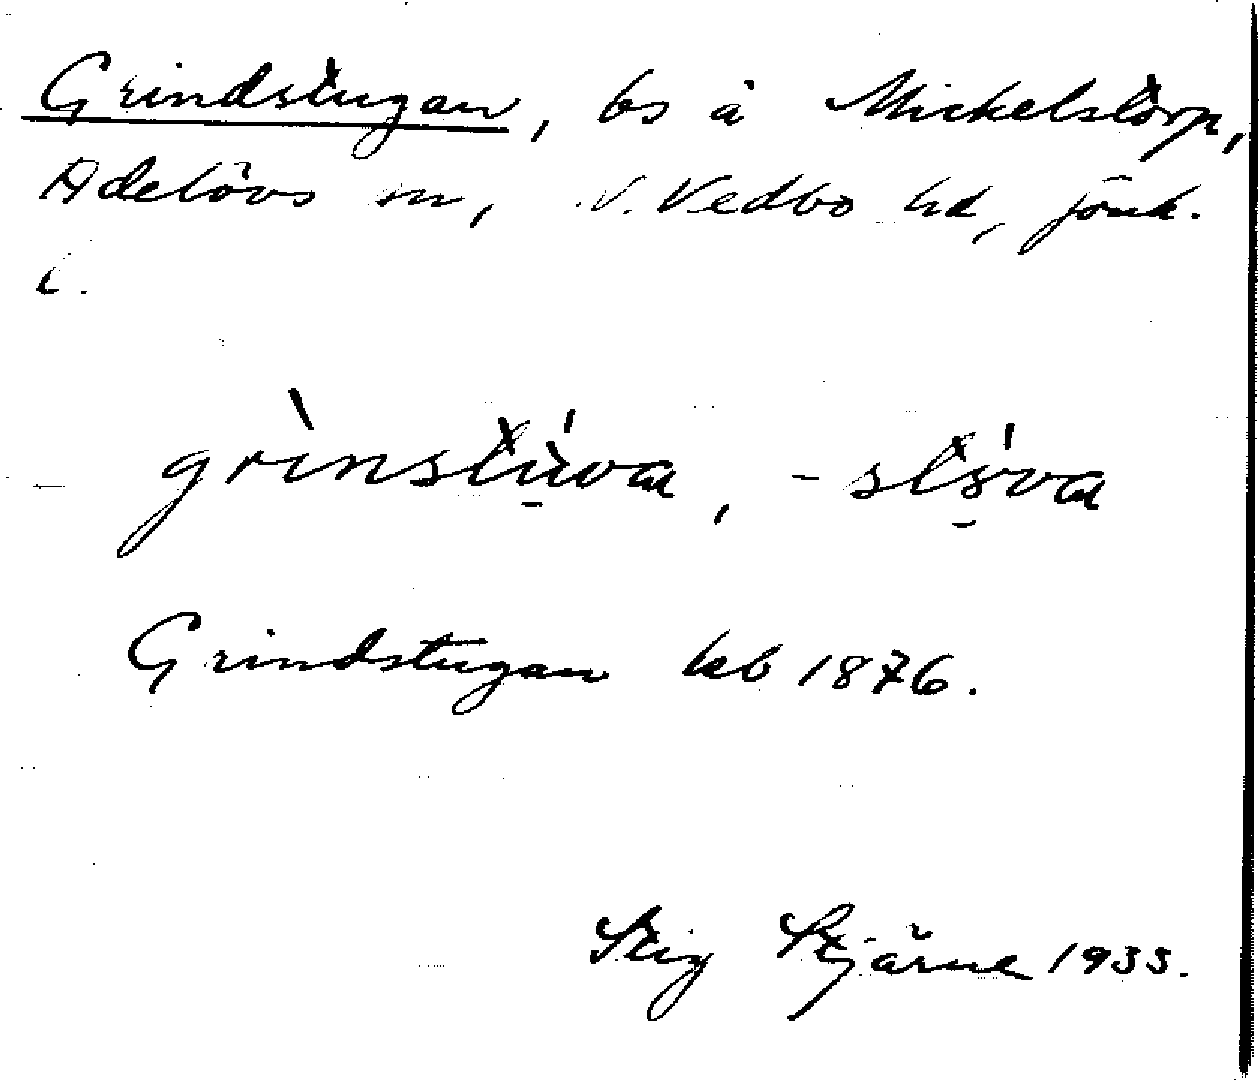 Grindstugan, bs å Mickelstorp,
Adelövs sn, N. Vedbo hd, Jönk.
l.
grìnstùva, -stòva
Grindstugan kb 1876.
Stig Stjärne 1933.